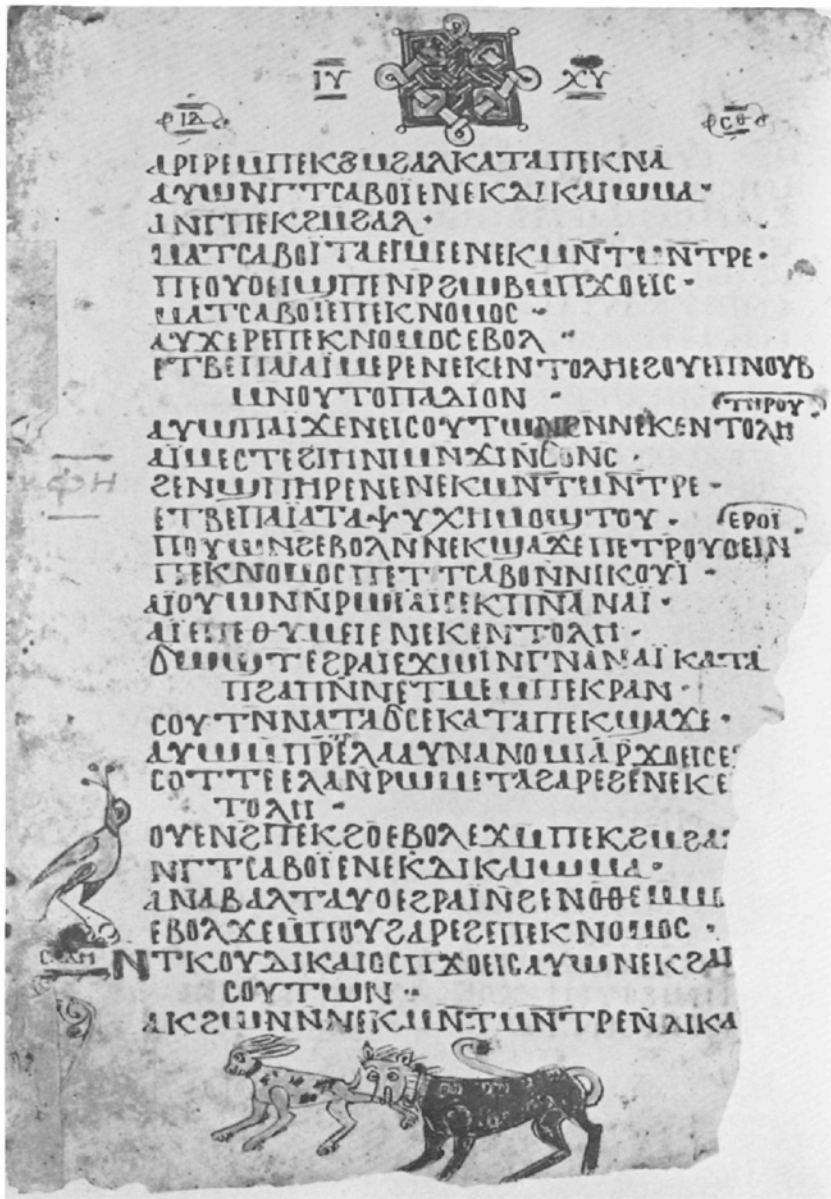 ⲓ̅ⲩ̅ ⲭ̅ⲩ̅
ⲓⲇ ⲥⲑ
ⲁⲣⲓⲣⲉⲙⲡⲉⲕϩⲙϩⲁⲗⲕⲁⲧⲁⲡⲉⲕⲛⲁ
ⲁⲩⲱⲛⲅⲧⲥⲁⲃⲟⲓ̈ⲉⲛⲉⲕⲇⲓⲕⲁⲓⲱⲙⲁ·
ⲁⲛⲅⲡⲉⲕϩⲙϩⲁⲗ·
ⲙⲁⲧⲥⲁⲃⲟⲓ̈ⲧⲁⲉⲓⲙⲉⲉⲛⲉⲕⲙⲛ̅ⲧⲙⲛ̅ⲧⲣⲉ·
ⲡⲉⲟⲩⲟⲉⲓϣⲡⲉⲛⲣϩⲱⲃⲙⲡϫⲟⲉⲓⲥ·
ⲙⲁⲧⲥⲁⲃⲟⲓ̈ⲉⲡⲉⲕⲛⲟⲙⲟⲥ·
ⲁⲩϫⲉⲣⲉⲡⲉⲕⲛⲟⲙⲟⲥⲉⲃⲟⲗ·
ⲉⲧⲃⲉⲡⲁⲓⲁⲓⲙⲉⲣⲉⲛⲉⲕⲉⲛⲧⲟⲗⲏⲉϩⲟⲩⲉⲡⲛⲟⲩⲃ
ⲙⲛⲟⲩⲧⲟⲡⲁⲇⲓⲟⲛ·
ⲧⲏⲣⲟⲩ
ⲁⲩⲱⲡⲁⲓϫⲉⲛⲉⲓⲥⲟⲩⲧⲱⲛⲡⲉⲛⲛⲉⲕⲉⲛⲧⲟⲗⲏ
ⲁⲓ̈ⲙⲉⲥⲧⲉϩⲓⲏⲛⲓⲙⲛϫⲓⲛϭⲟⲛⲥ·
ϩⲉⲛϣⲡⲏⲣⲉⲛⲉⲛⲉⲕⲙⲛⲧⲙⲛⲧⲣⲉ·
ⲉⲧⲃⲉⲡⲁⲓ̈ⲁⲧⲁⲯⲩⲭⲏⲙⲟϣⲧⲟⲩ·
ⲉⲣⲟⲓ̈
ⲡⲟⲩⲱⲛϩⲉⲃⲟⲗⲛⲛⲉⲕϣⲁϫⲉⲡⲉⲧⲣⲟⲩⲟⲉⲓⲛ
ⲡⲉⲕⲛⲟⲙⲟⲥⲡⲉⲧⲧⲥⲁⲃⲟⲛⲛⲓⲕⲟⲩⲓ·
ⲁⲓⲟⲩⲱⲛⲛⲣⲱⲓⲁⲓⲥⲉⲕⲡⲛⲁⲛⲁⲓ̈·
ⲁⲓⲉⲡⲉⲑⲩⲙⲉⲓⲉⲛⲉⲕⲉⲛⲧⲟⲗⲏ·
ϭⲱϣⲧⲉϩⲣⲁⲓ̈ⲉϫⲱⲓ̈ⲛⲅⲛⲁⲛⲁⲓ̈ⲕⲁⲧⲁ
ⲡϩⲁⲡⲛⲛⲉⲧⲙⲉⲙⲡⲉⲕⲣⲁⲛ·
ⲥⲟⲩⲧⲛⲛⲁⲧⲁϭⲥⲉⲕⲁⲧⲁⲡⲉⲕϣⲁϫⲉ·
ⲁⲩⲱⲙⲡⲣⲉⲗⲁⲁⲩⲛⲁⲛⲟⲙⲓⲁⲣϫⲟⲉⲓⲥⲉ
ⲥⲟⲧⲧⲉⲉⲗⲁⲛⲣⲱⲙⲉⲧⲁϩⲁⲣⲉϩⲉⲛⲉⲕⲉ
ⲧⲟⲗⲏ·
ⲟⲩⲉⲛϩⲡⲉⲕϩⲟⲉⲃⲟⲗⲉϫⲙⲡⲉⲕϩⲙϩⲁ
ⲛⲅⲧⲥⲁⲃⲟⲓ̈ⲉⲛⲉⲕⲇⲓⲕⲁⲓⲱⲙⲁ·
ⲁⲛⲁⲃⲁⲗⲧⲁⲩⲟⲉϩⲣⲁⲓ̈ⲛϩⲉⲛⲟⲑⲉⲙⲙ
ⲉⲃⲟⲗϫⲉⲙⲡⲟⲩϩⲁⲣⲉϩⲉⲡⲉⲕⲛⲟⲙⲟⲥ·
ⲛⲧⲕⲟⲩⲇⲓⲕⲁⲓⲟⲥⲡϫⲟⲉⲓⲥⲁⲩⲱⲛⲉⲕϩⲁⲡ
ⲥⲟⲩⲧⲱⲛ·
ⲁⲕϩⲱⲛⲛⲛⲉⲕⲙⲛ̅ⲧⲙⲛ̅ⲧⲣⲉⲛⲇⲓⲕⲁ